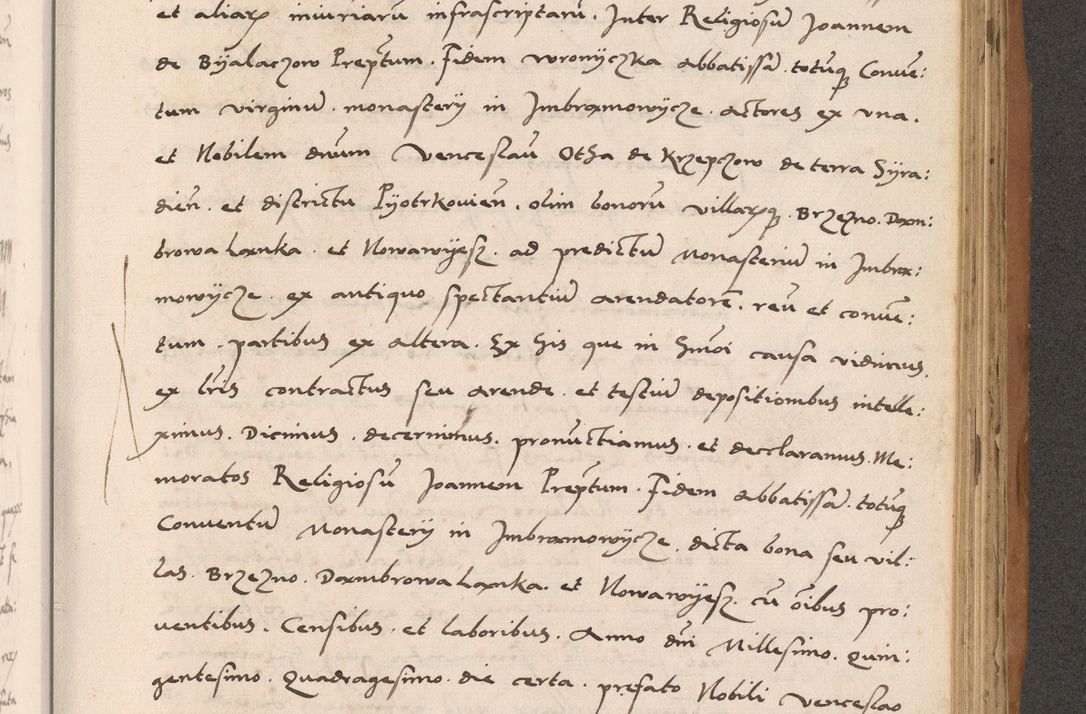 et aliarꝝ iniuriarū infrascriptarū. Inter Religiosū Joannem
de Byalaczow Prep̄tum. Fidem wronyczka abbatissā. totūqꝫ Conue:
tum virginū. monastery in Imbramowycze. actores ex vna.
et Nobilem dnum Venceslaū Otha de Krzepczow de terra Syra:
dień. et districtu Pyotrkouień. olim bonorū villarꝝqꝫ. Brzezno. Dam:
browa Lanka. et Nowawyesz. ad predictū Monasteriū in Imbra:
mowycze. ex antiquo spectantiū arendatorē. reū et conuē:
tum. partibus ex altera. Ex his que in hmōi causa vidimus.
ex lr̄is contractus seu arende. et testiū depositionibus intelle:
ximus. Dicimus. decernimus. pronūctiamus. et decclaramus. Me:
moratos Religiosū Joannem Prep̄tum. Fidem abbatissā. totūqꝫ
Conuentū Monastery in Imbramowycze. dicta bona seu vil:
las. Brzezno. Dambrowa Lanka. et Nowawyesz. cū oībus pro:
uentibus. Censibus. et laboribus. Anno dn̄i Millesimo. quin:
gentesimo. Quadragesimo. die certa. prefato Nobili Venceslao